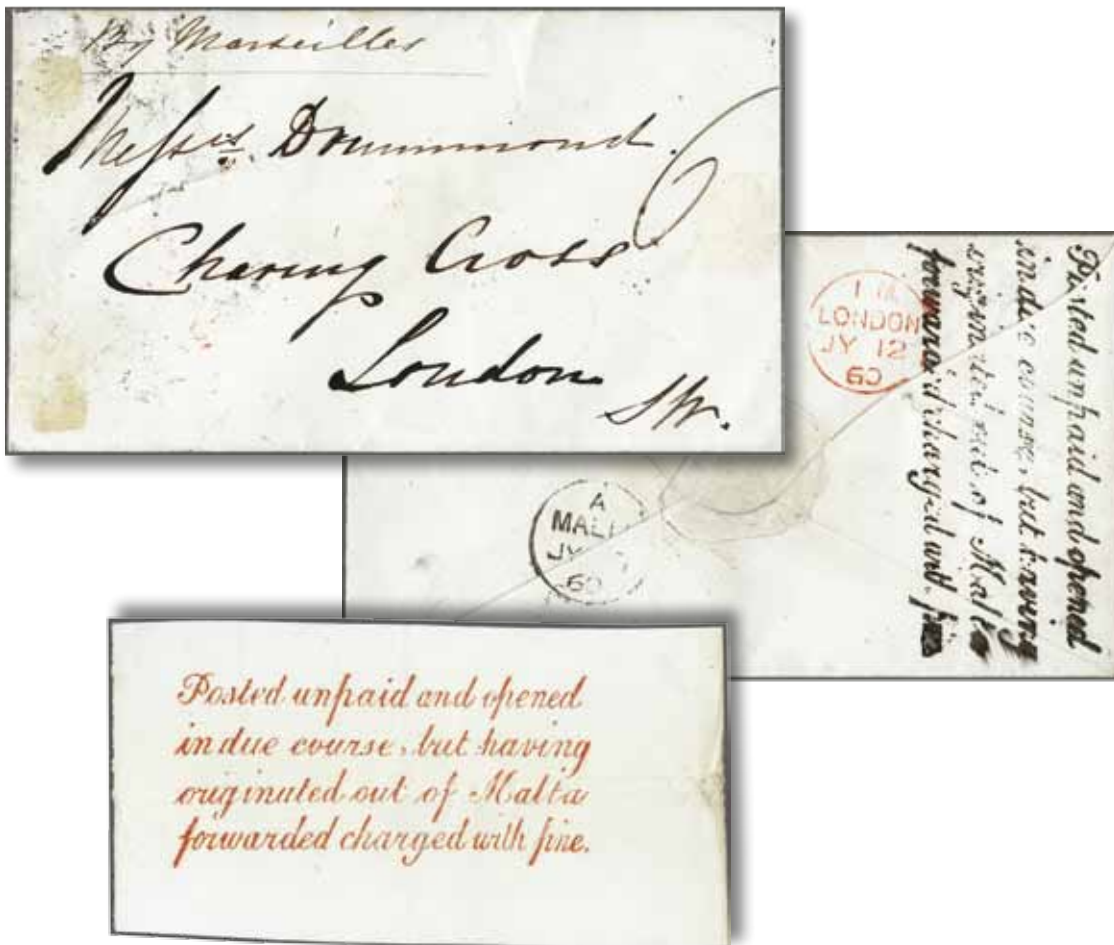 By Marseilles
Messrs. Drummond.
6
Charing Cross
London
SW.
LONDON
JY 12
60
Posted unpaid and opened
in due course, but having
originated out of Malta
forwarded charged with fine
A
MAL
JY
60
Posted unpaid and opened
in due course, but having
originated out of Malta
forwarded charged with fine.